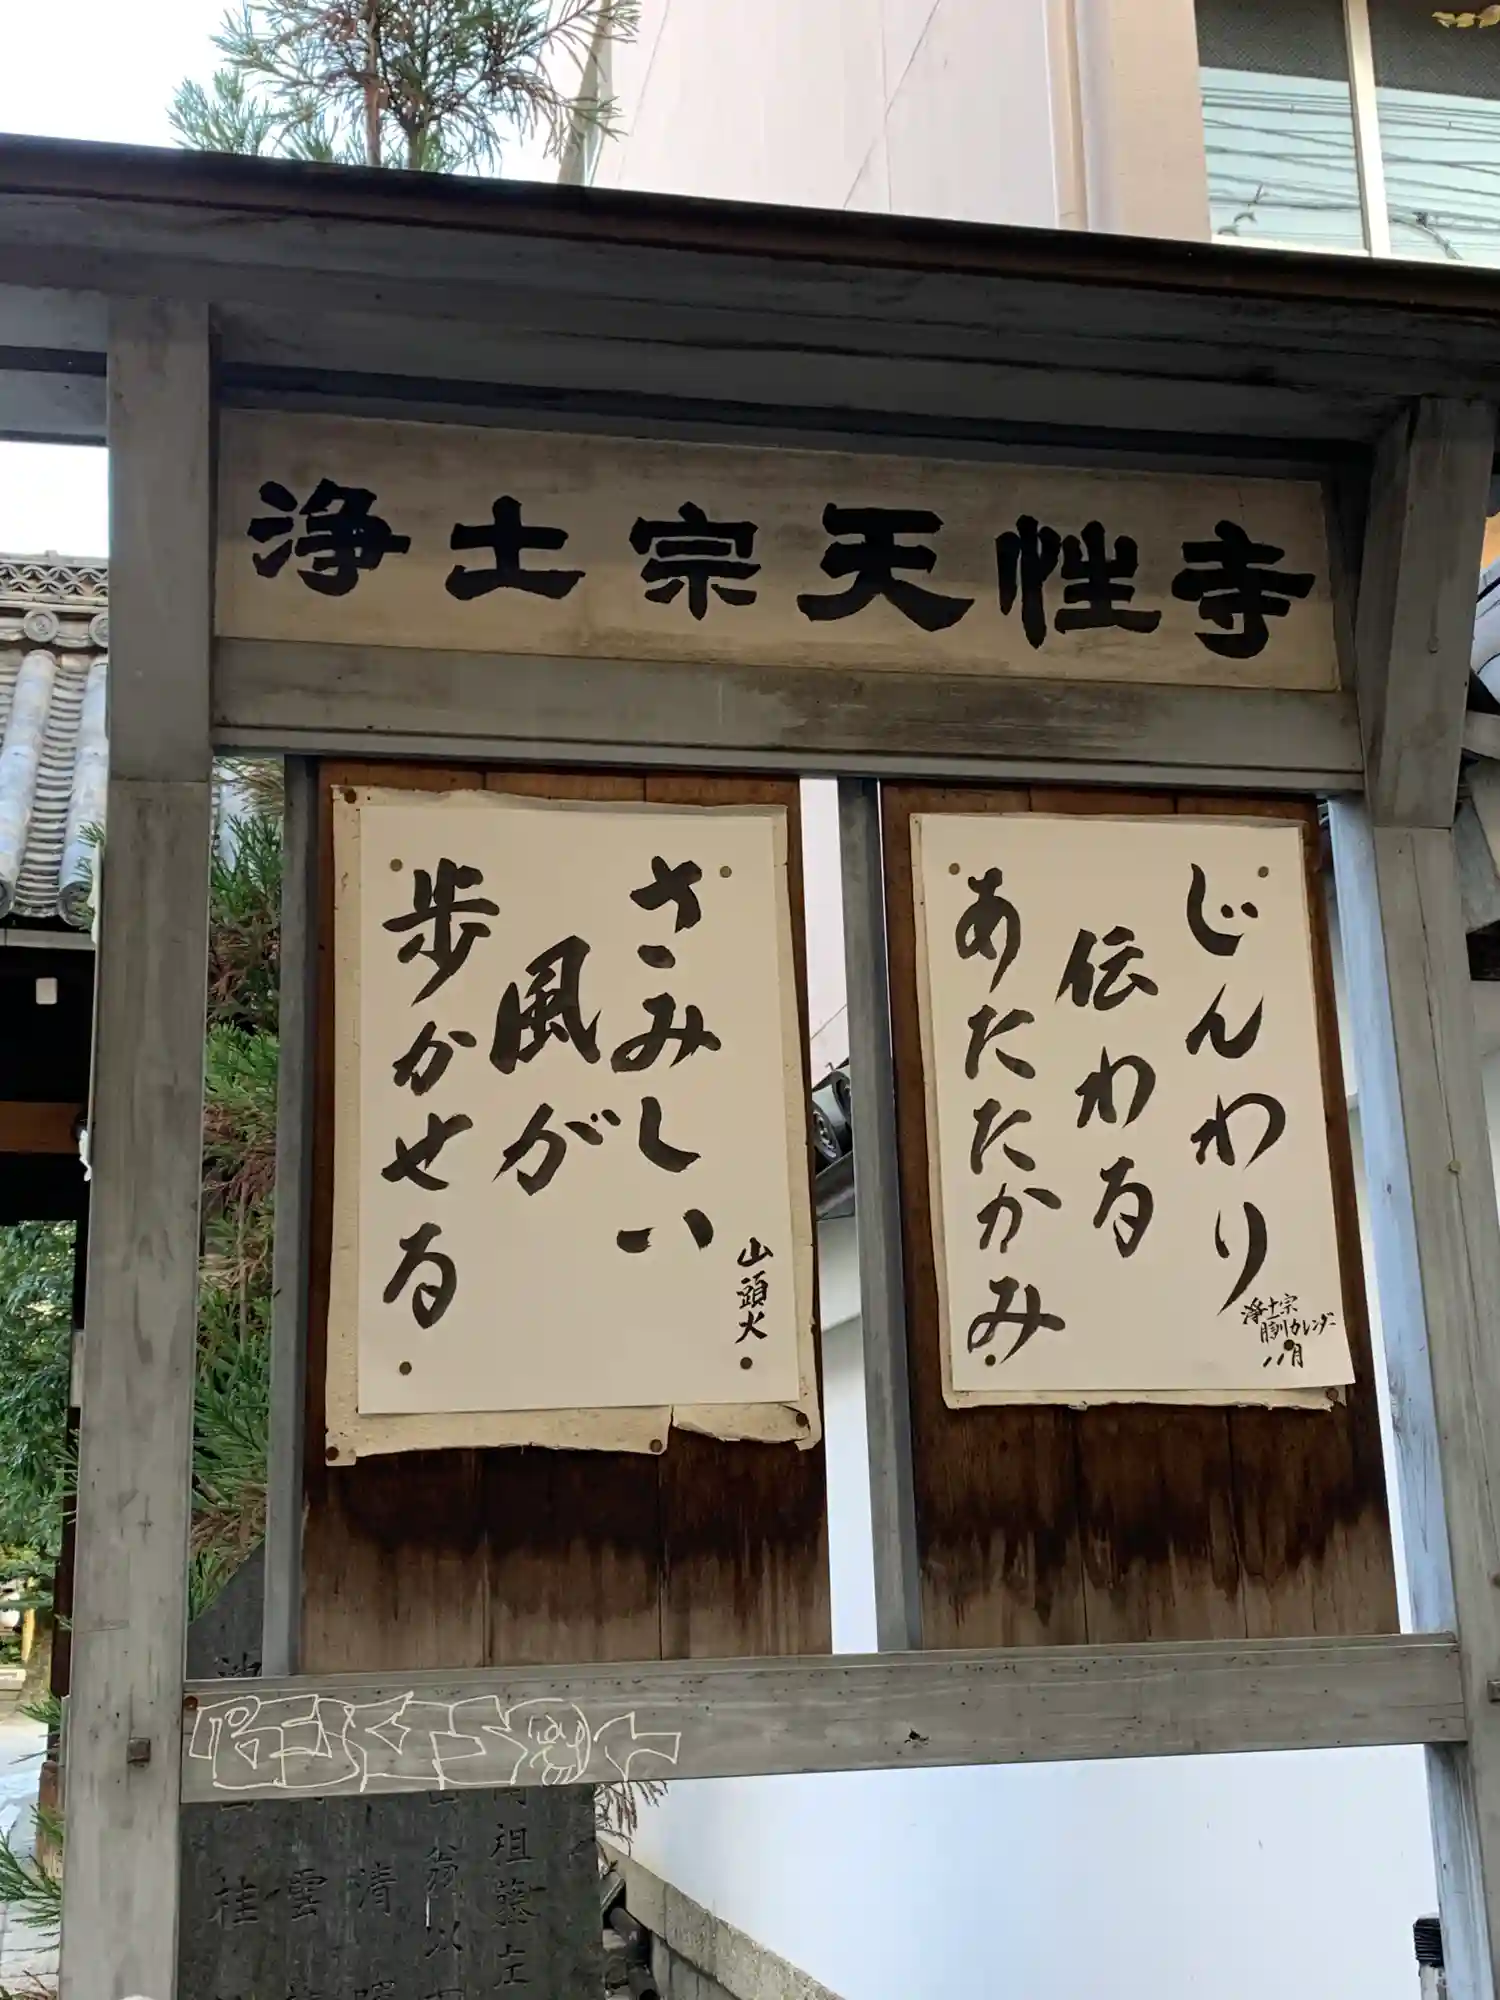 浄土宗天性寺
じんわり
伝わる
あたたかみ
浄土宗
月訓カレンダー
11月
さみしい
風が
歩かせる
山頭火
祖藤左
翁以
清
雲
桂